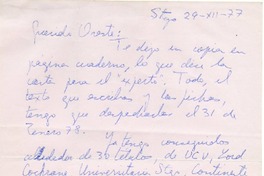 Stgo 29-XII-77
Querido Oreste:
Te dejo en copia en
página cuaderno, lo que dice la
carta para el "experto". Todo, el
texto que escribas y las fichas,
tengo que despacharlas el 31 de
Enero 78.
Ya tengo conseguidos
alrededor de 30 títulos, de UCV, Lord
Cochrane Universitaria. Sgo, Continente